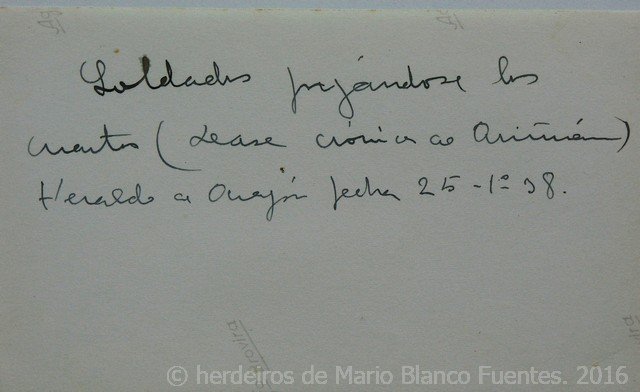 Soldados jugándose los
cuartos (Lease crónica de
Heraldo de Aragón fecha 25-1º-38.
© herdeiros de Mario Blanco Fuentes. 2016